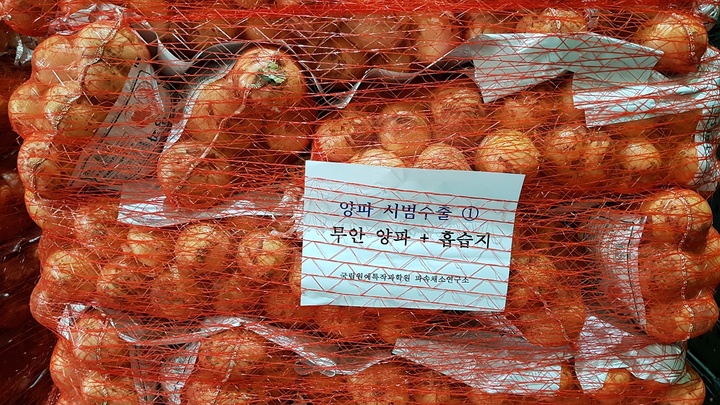 양파 시범수출 ①
무안 양파 + 흡습지
국립원예특작과학원 파속채소연구소